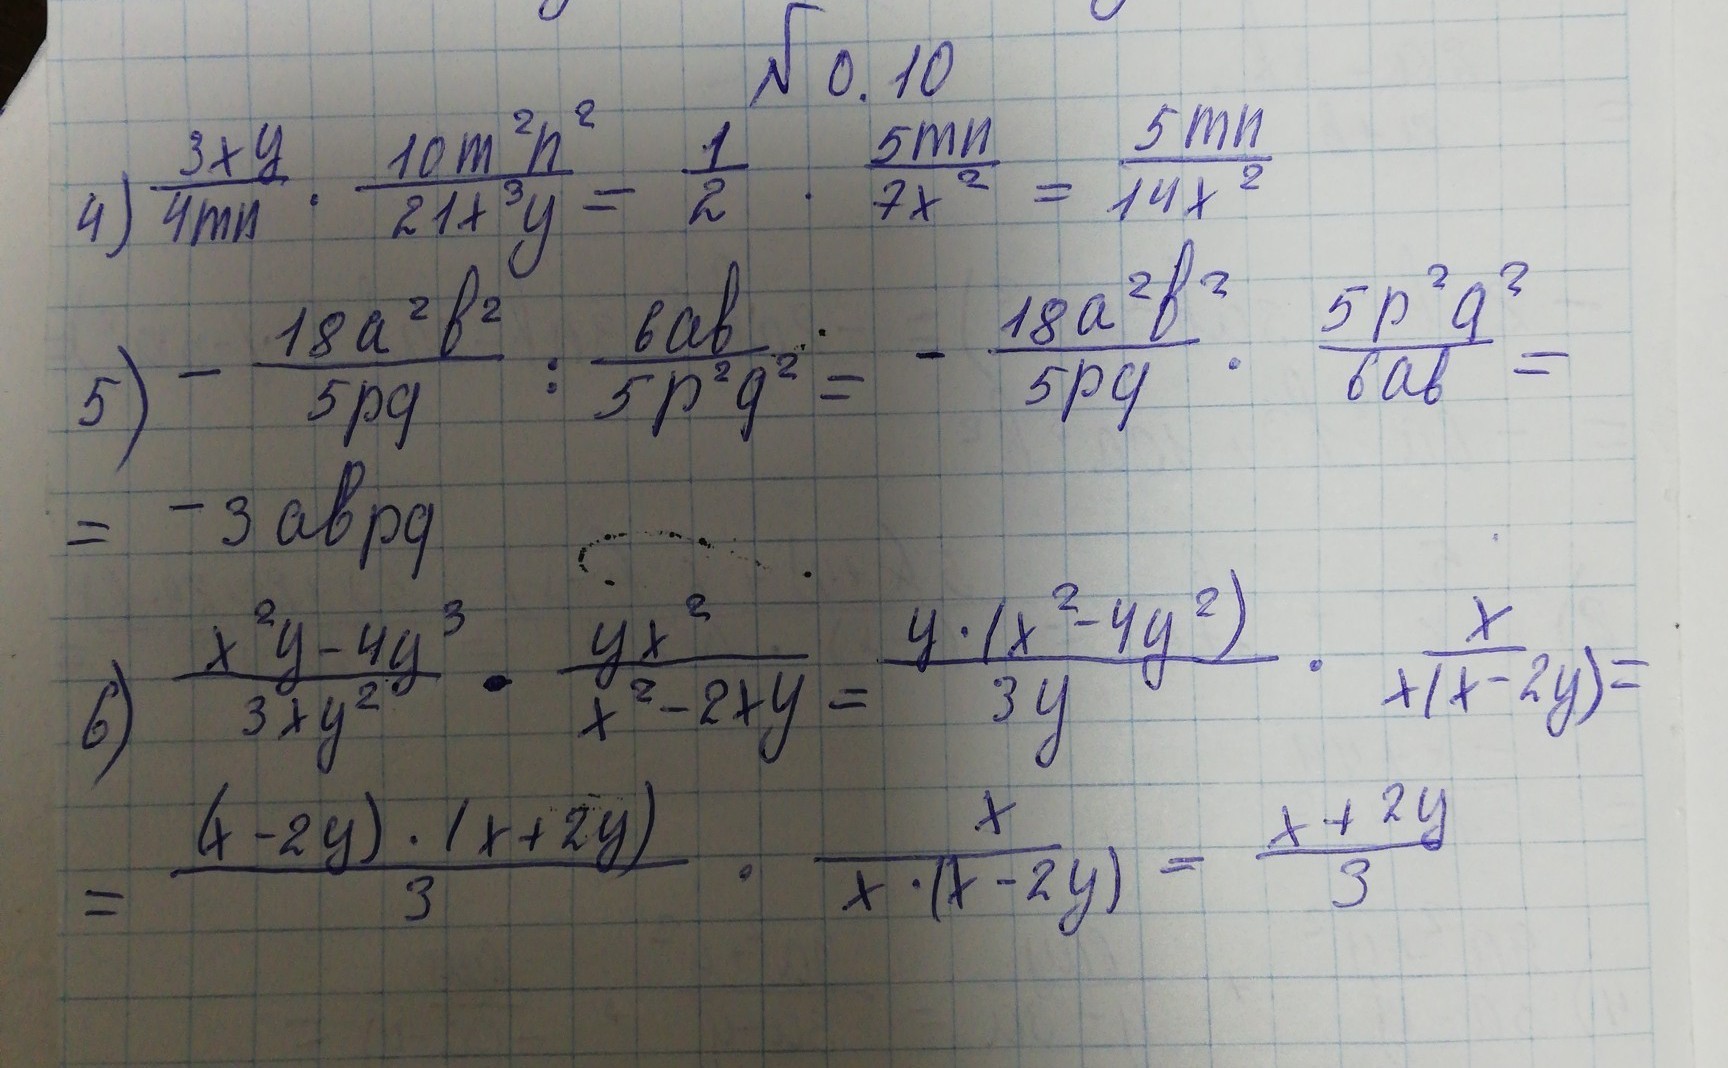 № 0.10
4) 3xy/4mn · 10m²n²/21x³y = 1/2 · 5mn/7x² = 5mn/14x²
5) - 18a²b²/5pq : 6ab/5p²q² = - 18a²b²/5pq · 5p²q²/6ab =
= -3abpq
6) x²y-4y³/3xy² · yx²/x²-2xy = y·(x²-4y²)/3y · x/x(x-2y) =
= (x-2y)·(x+2y)/3 · x/x·(x-2y) = x+2y/3